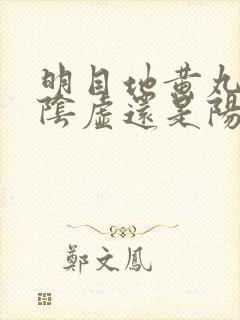 明目地黄丸
陰虛還是陽
鄭文鳳